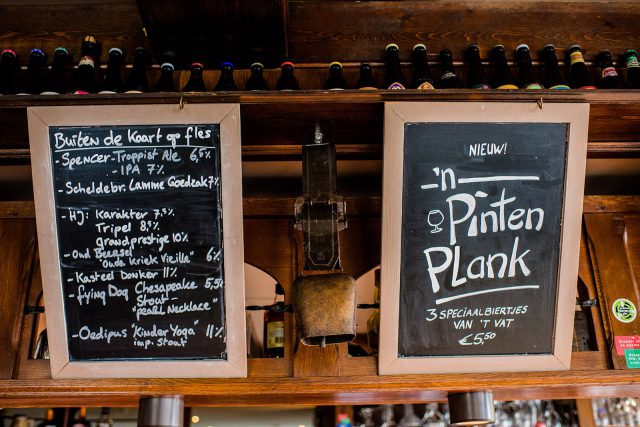 Buiten de Kaart op fles
-Spencer-Trappist Ale 6,5%
-IPA 7%
-Scheldebr. Lamme Goedzak 7%
-HJ: Karakter 7,5%
Tripel 8,5%
grandprestige 10%
-Oud Beersel 6%
"Oude Kriek Vieille"
-Kasteel Donker 11%
-flying Dog Chesapeake 5,5
Stout -
"pearl Necklace"
-Oedipus "Kinder Yoga" 11%
imp. Stout
NIEUW!
'n
Pinten
PLank
3 SPECIAALBIERTJES
VAN 'T VAT
€5,50